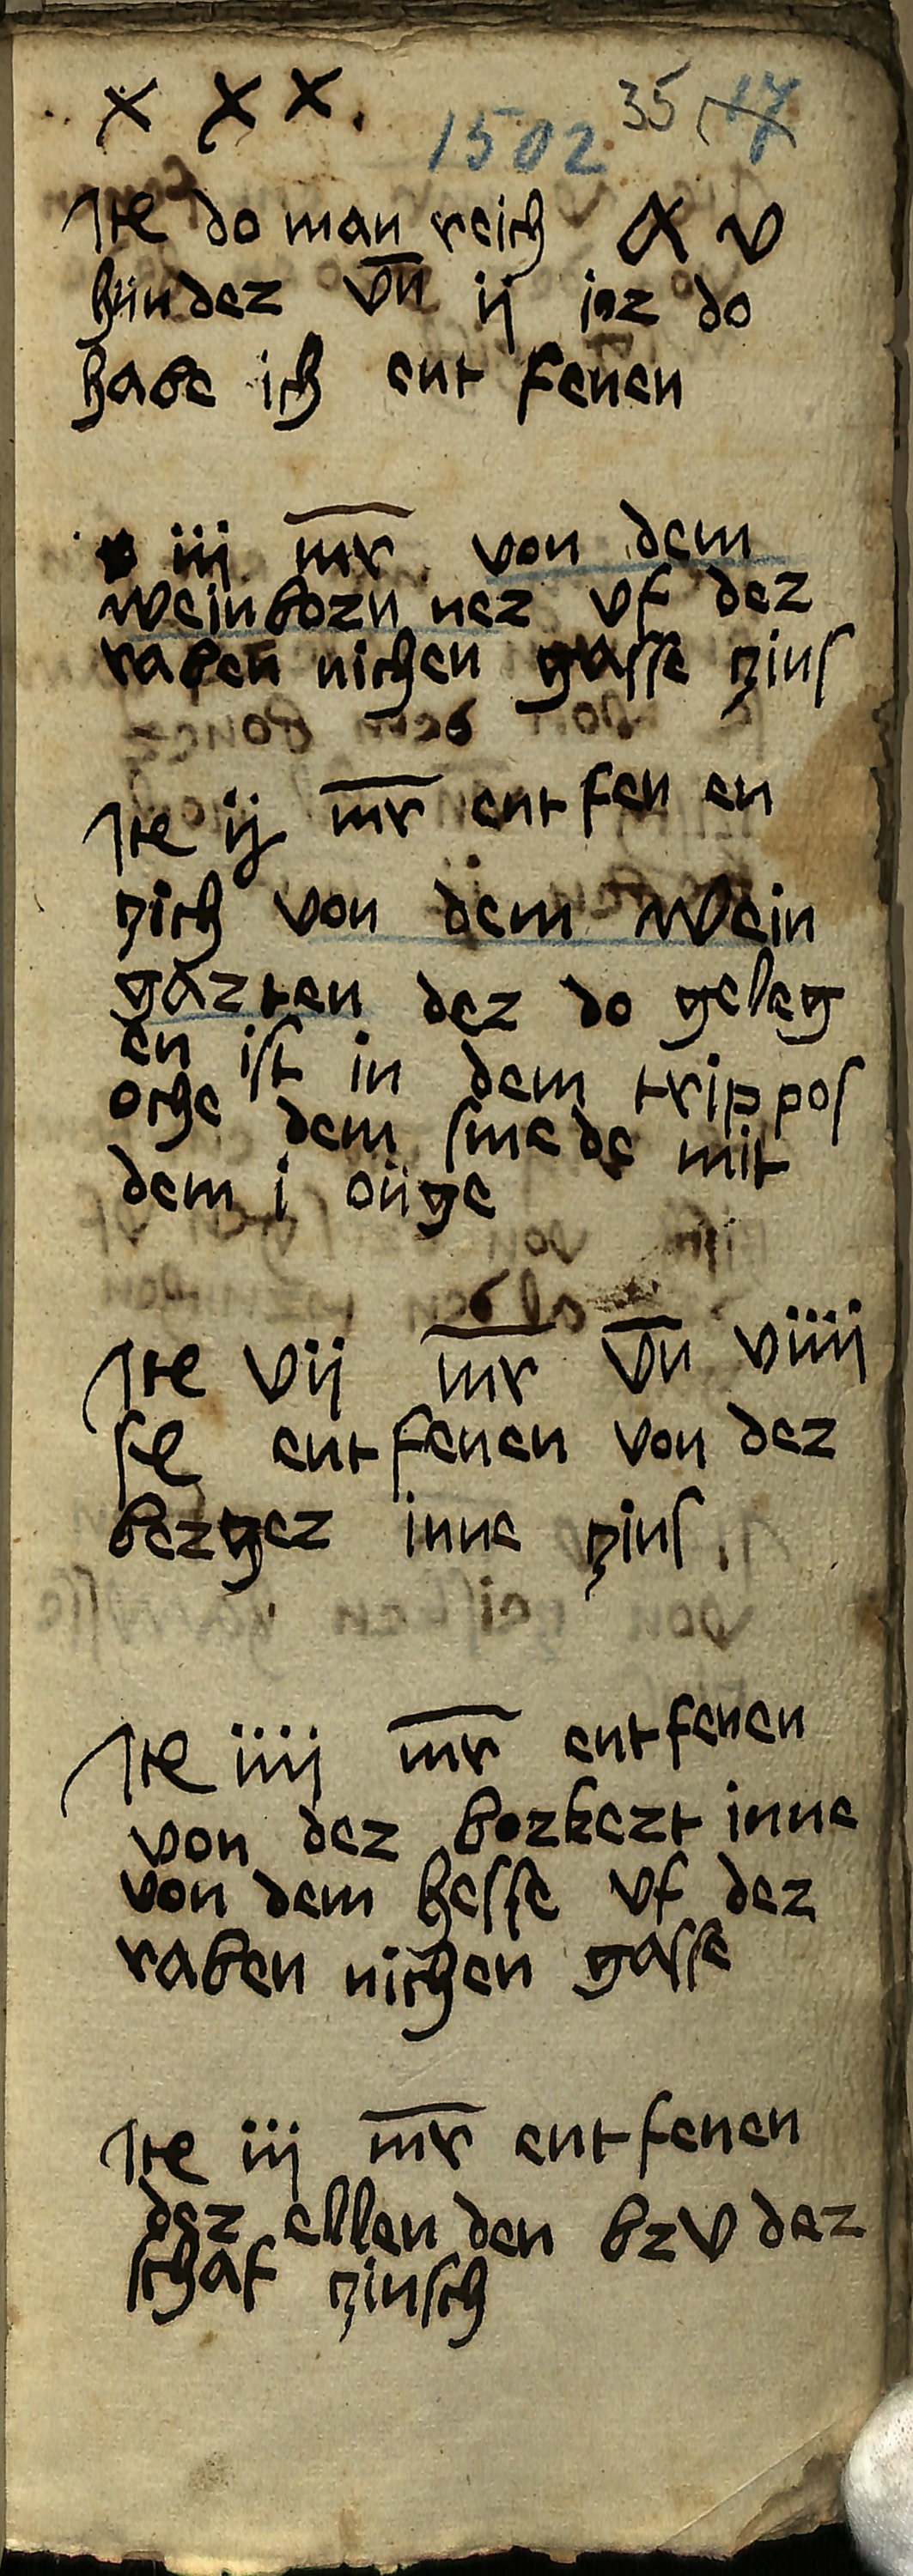 x x x.
1502 35 17
Ite do man reich x v
hundez vn̄ ij ioz do
habe ich ent fenen
iij mr von dem
weinbozn nez vf dez
raben nichen gasse zins
Ite ij mr ent fen en
zich von dem wein
gazten dez do geleg
en ist in dem trippos
oche dem smede mit
dem i oüge
Ite vij mr vn̄ viiij
sc entfenen von dez
bezgez inne zins
Ite iiij mr entfenen
von dez bozkezt inne
von dem hesse vf dez
raben nichen gasse
Ite iij mr entfenen
dez ellen den bzv dez
schaf zinsch